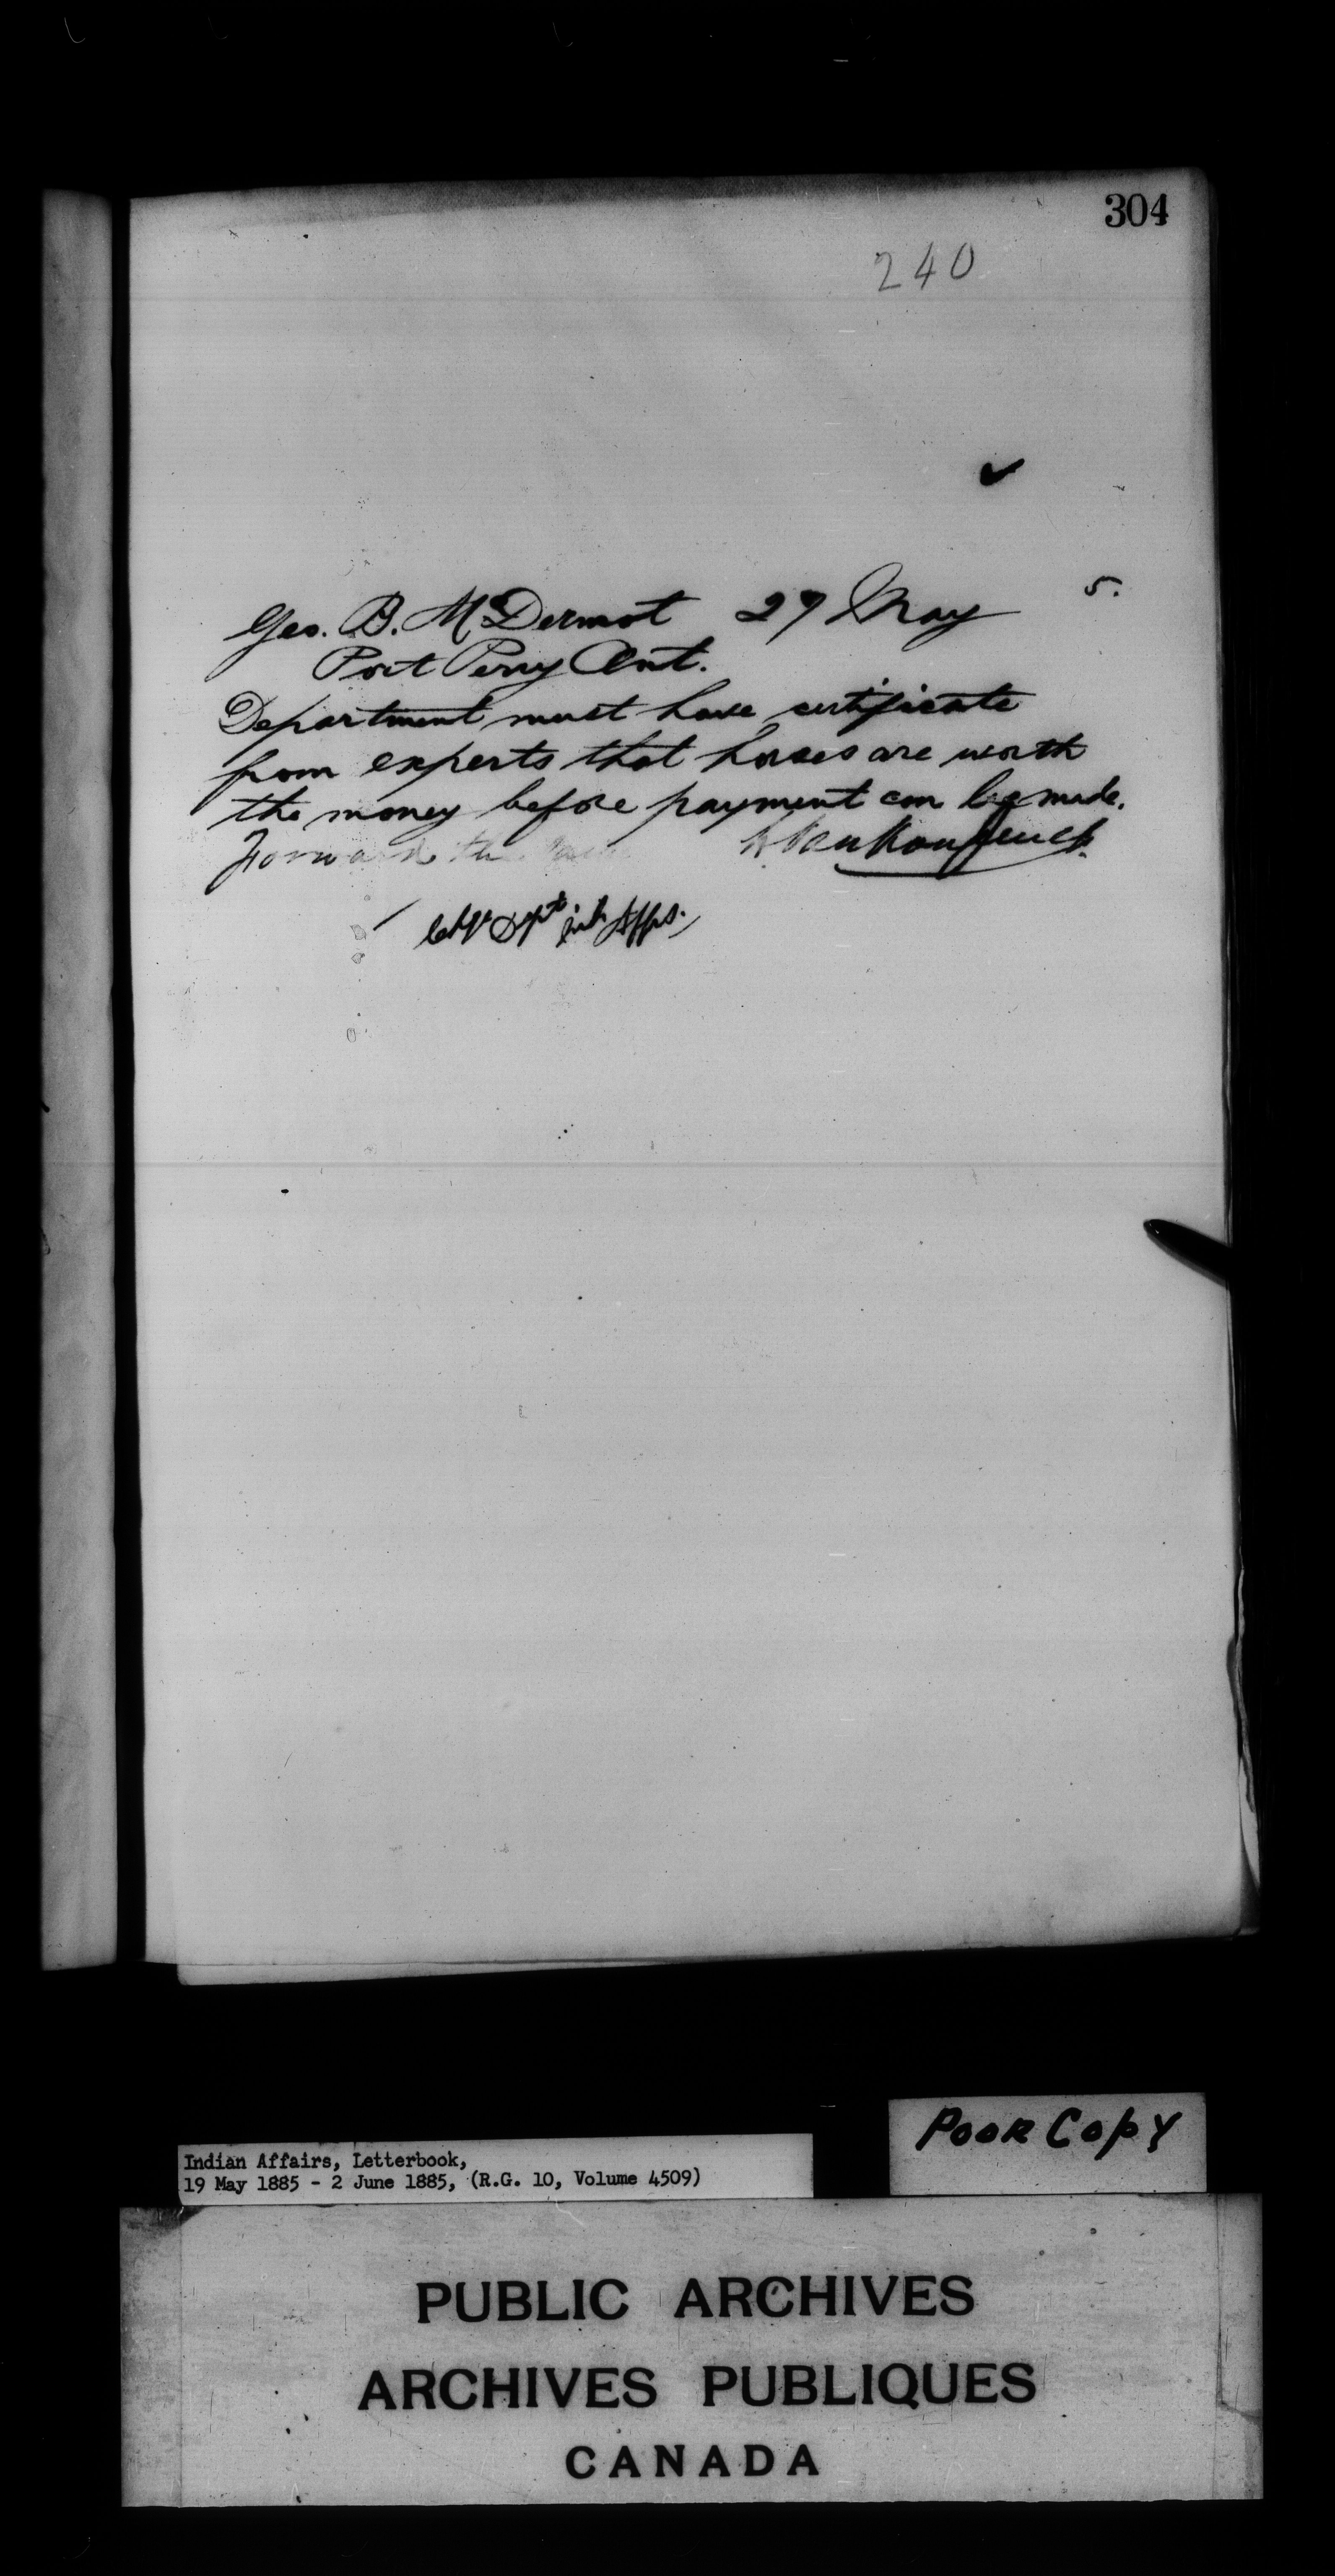 304
240
5.
Geo. B. McDermot 27 May
Port Perry Ont.
Department must have certificate
from experts that horses are worth
the money before payment can be made.
Forward the
L. Vankoughnet
Chge Dept Ind Affrs.
POOR COPY
Indian Affairs, Letterbook,
19 May 1885 - 2 June 1885, (R.G. 10, Volume 4509)
PUBLIC ARCHIVES
ARCHIVES PUBLIQUES
CANADA